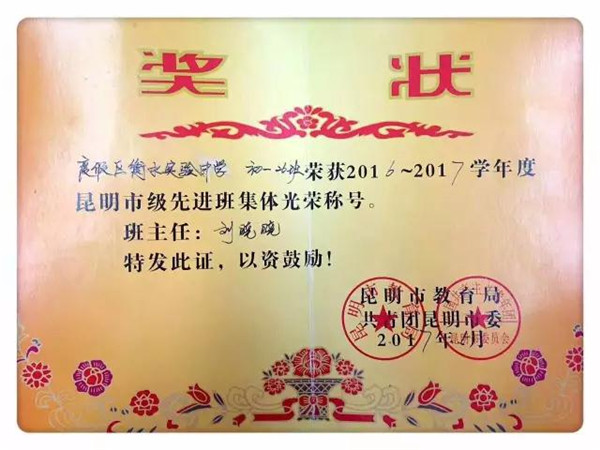 奖状
度假区衡水实验中学 初一 班荣获2016~2017学年度
昆明市级先进班集体光荣称号。
班主任：刘晓晓
特发此证，以资鼓励！
昆明市教育局
共青团昆明市委
2017年 月